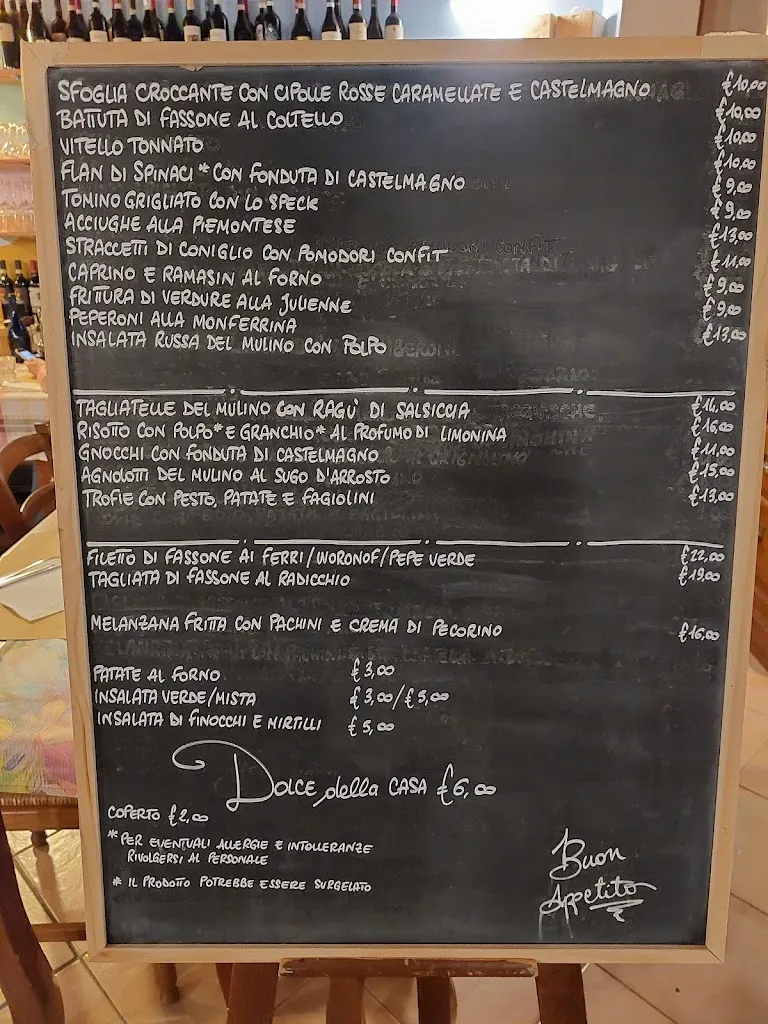 SFOGLIA CROCCANTE CON CIPOLLE ROSSE CARAMELLATE E CASTELMAGNO €10,00
BATTUTA DI FASSONE AL COLTELLO €10,00
VITELLO TONNATO €10,00
FLAN DI SPINACI * CON FONDUTA DI CASTELMAGNO €10,00
TOMINO GRIGLIATO CON LO SPECK €9,00
ACCIUGHE ALLA PIEMONTESE €9,00
STRACCETTI DI CONIGLIO CON POMODORI CONFIT €13,00
CAPRINO E RAMASIN AL FORNO €11,00
FRITTURA DI VERDURE ALLA JULIENNE €9,00
PEPERONI ALLA MONFERRINA €9,00
INSALATA RUSSA DEL MULINO CON POLPO €13,00
TAGLIATELLE DEL MULINO CON RAGU' DI SALSICCIA €14,00
RISOTTO CON POLPO* E GRANCHIO* AL PROFUMO DI LIMONINA €16,00
GNOCCHI CON FONDUTA DI CASTELMAGNO €11,00
AGNOLOTTI DEL MULINO AL SUGO D'ARROSTO €15,00
TROFIE CON PESTO, PATATE E FAGIOLINI €13,00
FILETTO DI FASSONE AI FERRI/WORONOF/PEPE VERDE €22,00
TAGLIATA DI FASSONE AL RADICCHIO €19,00
MELANZANA FRITTA CON PACHINI E CREMA DI PECORINO €16,00
PATATE AL FORNO €3,00
INSALATA VERDE/MISTA €3,00/€5,00
INSALATA DI FINOCCHI E MIRTILLI €5,00
DOLCE della CASA €6,00
COPERTO €2,00
* PER EVENTUALI ALLERGIE E INTOLLERANZE
RIVOLGERSI AL PERSONALE
* IL PRODOTTO POTREBBE ESSERE SURGELATO
Buon
Appetito